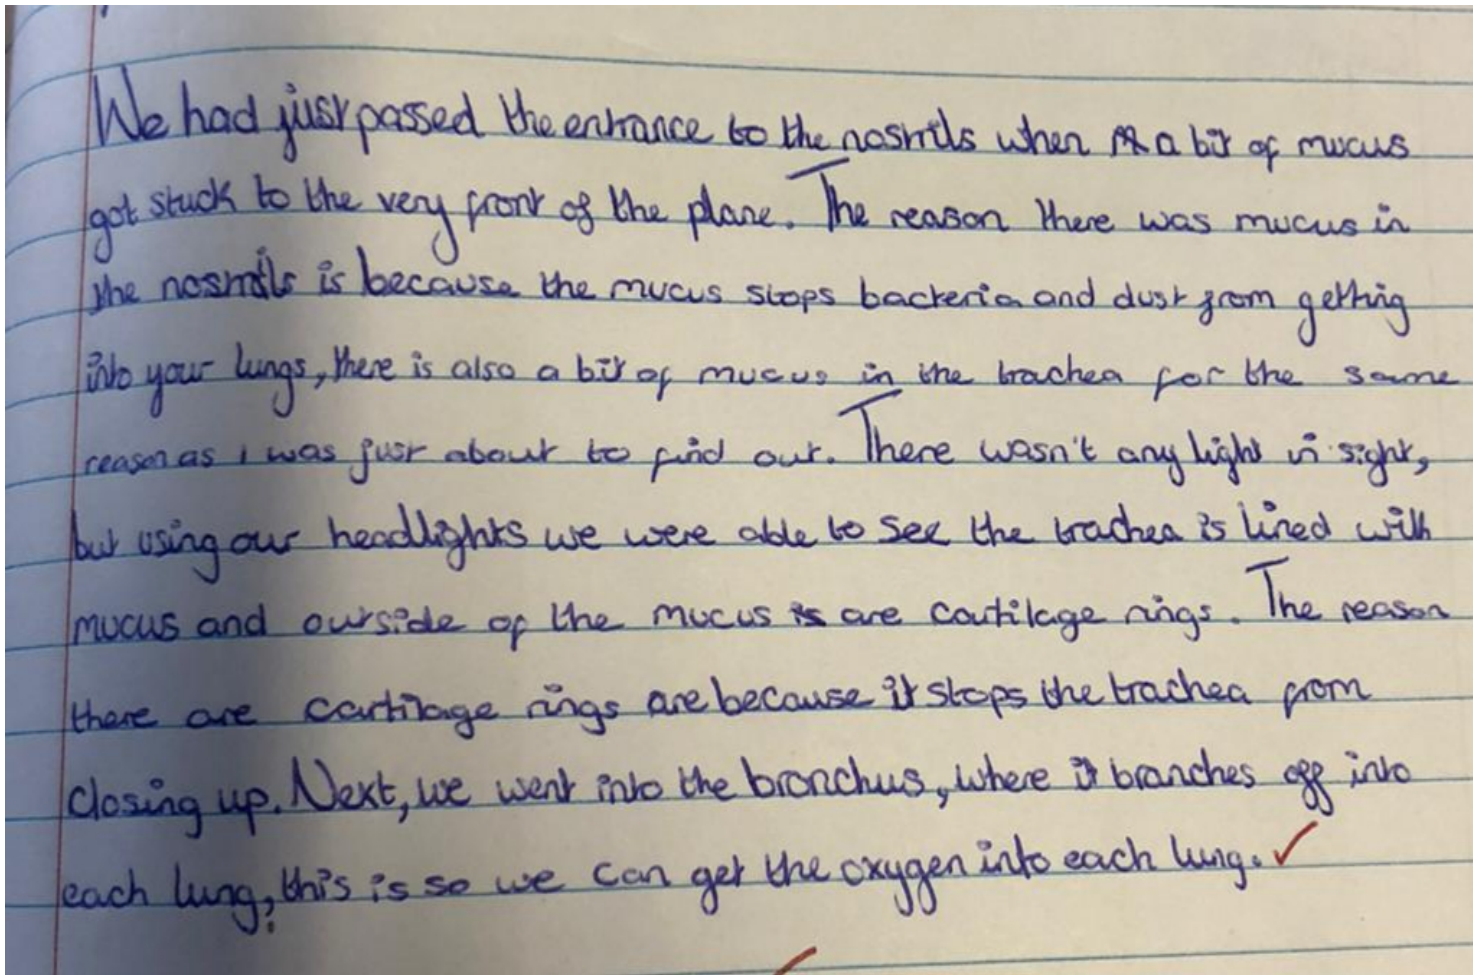 We had just passed the entrance to the nostrils when a bit of mucus
got stuck to the very front of the plane. The reason there was mucus in
the nostrils is because the mucus stops bacteria and dust from getting
into your lungs, there is also a bit of mucus in the trachea for the same
reason as i was just about to find out. There wasn't any light in sight,
but using our headlights we were able to see the trachea is lined with
mucus and outside of the mucus is are cartilage rings. The reason
there are cartilage rings are because it stops the trachea from
closing up. Next, we went into the bronchus, where it branches off into
each lung, this is so we can get the oxygen into each lung.